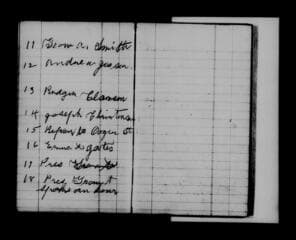 11 Geo. A. Smith
12 Andrew Jenson
13 Rudger Clawson
14 Joseph Christensen
15
16 Gates
17 Pres Grant
18 Pres Grant
spoke an hour